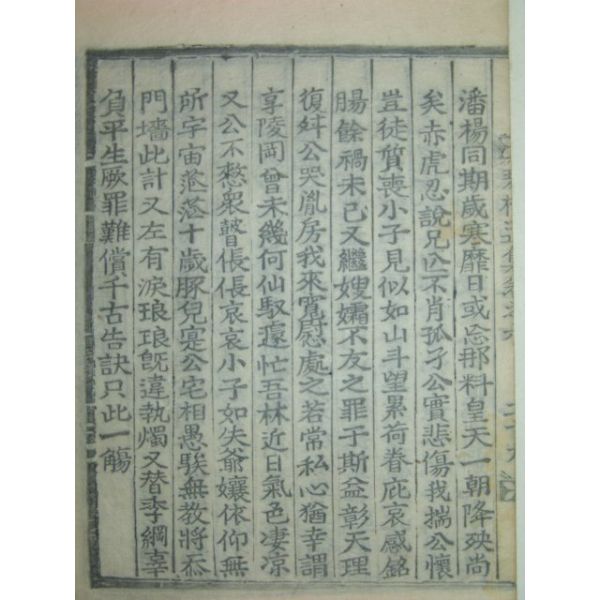 潘楊同期歲寒靡日或忘那料皇天一朝降殃尚
矣赤虎忍說兄亡不肖孤孑公實悲傷我揣公懷
豈徒質喪小子見似如山斗望累荷眷庇哀感銘
腸餘禍未已又繼嫂孀不友之罪于斯益彰天理
復舛公哭胤房我來寬慰處之若常私心猶幸謂
享陵岡曾未幾何仙馭遽忙吾林近日氣色凄涼
又公不憗衆瞽倀倀哀哀小子如失爺孃俅仰無
所宇宙茫茫十歲豚兒寔公宅相愚騃無教將忝
門墻此計又左有淚琅琅旣違執燭又替李綱辜
負平生厥罪難償千古告訣只此一觴